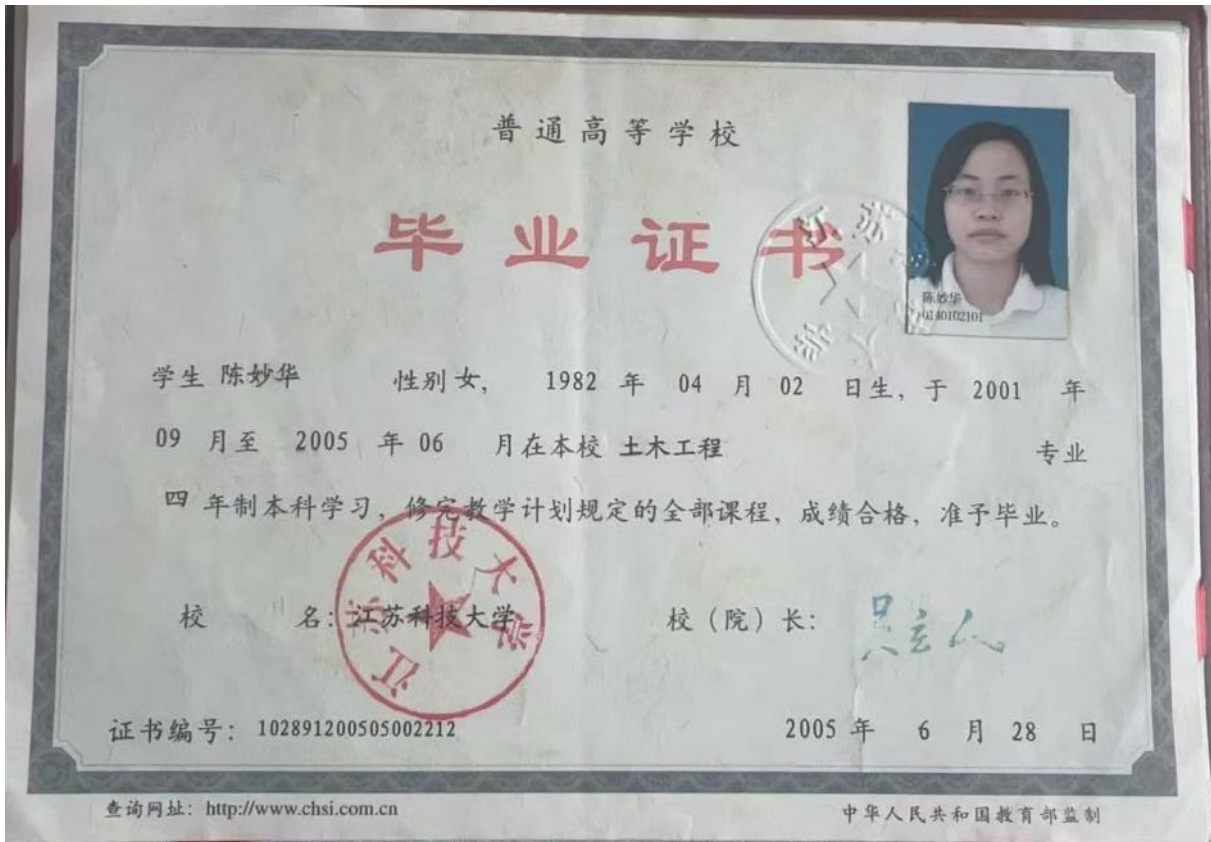 普通高等学校
毕业证书
陈妙华
0140102101
学生 陈妙华 性别 女, 1982 年 04 月 02 日生, 于 2001 年
09 月至 2005 年 06 月在本校 土木工程 专业
四 年制本科学习, 修完教学计划规定的全部课程, 成绩合格, 准予毕业。
江苏科技大学
校 名: 江苏科技大学 校（院）长:
证书编号: 102891200505002212 2005 年 6 月 28 日
查询网址: http://www.chsi.com.cn 中华人民共和国教育部监制